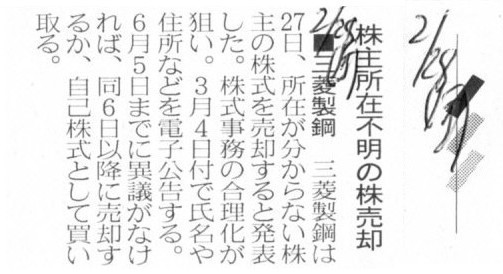 2/28
株主所在不明の株売却
2/28
■三菱製鋼　三菱製鋼は
27日、所在が分からない株
主の株式を売却すると発表
した。株式事務の合理化が
狙い。3月4日付で氏名や
住所などを電子公告する。
6月5日までに異議がなけ
れば、同6日以降に売却す
るか、自己株式として買い
取る。